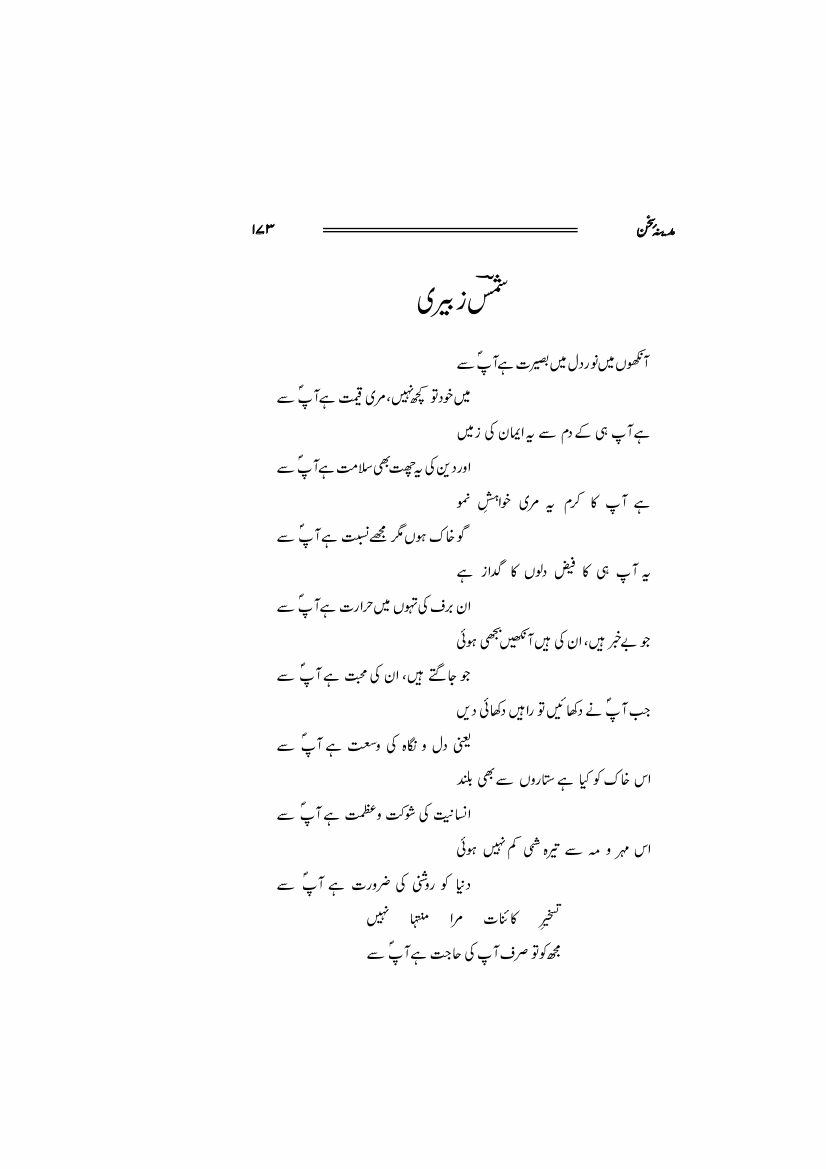 مدینۂ سخن ۱۷۳
شمسؔ زبیری
آنکھوں میں نور دل میں بصیرت ہے آپؐ سے
میں خود تو کچھ نہیں، مری قیمت ہے آپؐ سے
ہے آپ ہی کے دم سے یہ ایمان کی زمیں
اور دین کی یہ چھت بھی سلامت ہے آپؐ سے
ہے آپ کا کرم یہ مری خواہشِ نمو
گو خاک ہوں مگر مجھے نسبت ہے آپؐ سے
یہ آپ ہی کا فیض دلوں کا گداز ہے
ان برف کی تہوں میں حرارت ہے آپؐ سے
جو بے خبر ہیں، ان کی ہیں آنکھیں بجھی ہوئی
جو جاگتے ہیں، ان کی محبت ہے آپؐ سے
جب آپؐ نے دکھائیں تو راہیں دکھائی دیں
یعنی دل و نگاہ کی وسعت ہے آپؐ سے
اس خاک کو کیا ہے ستاروں سے بھی بلند
انسانیت کی شوکت و عظمت ہے آپؐ سے
اس مہر و مہ سے تیرہ شبی کم نہیں ہوئی
دنیا کو روشنی کی ضرورت ہے آپؐ سے
تسخیرِ کائنات مرا منتہا نہیں
مجھ کو تو صرف آپ کی حاجت ہے آپؐ سے